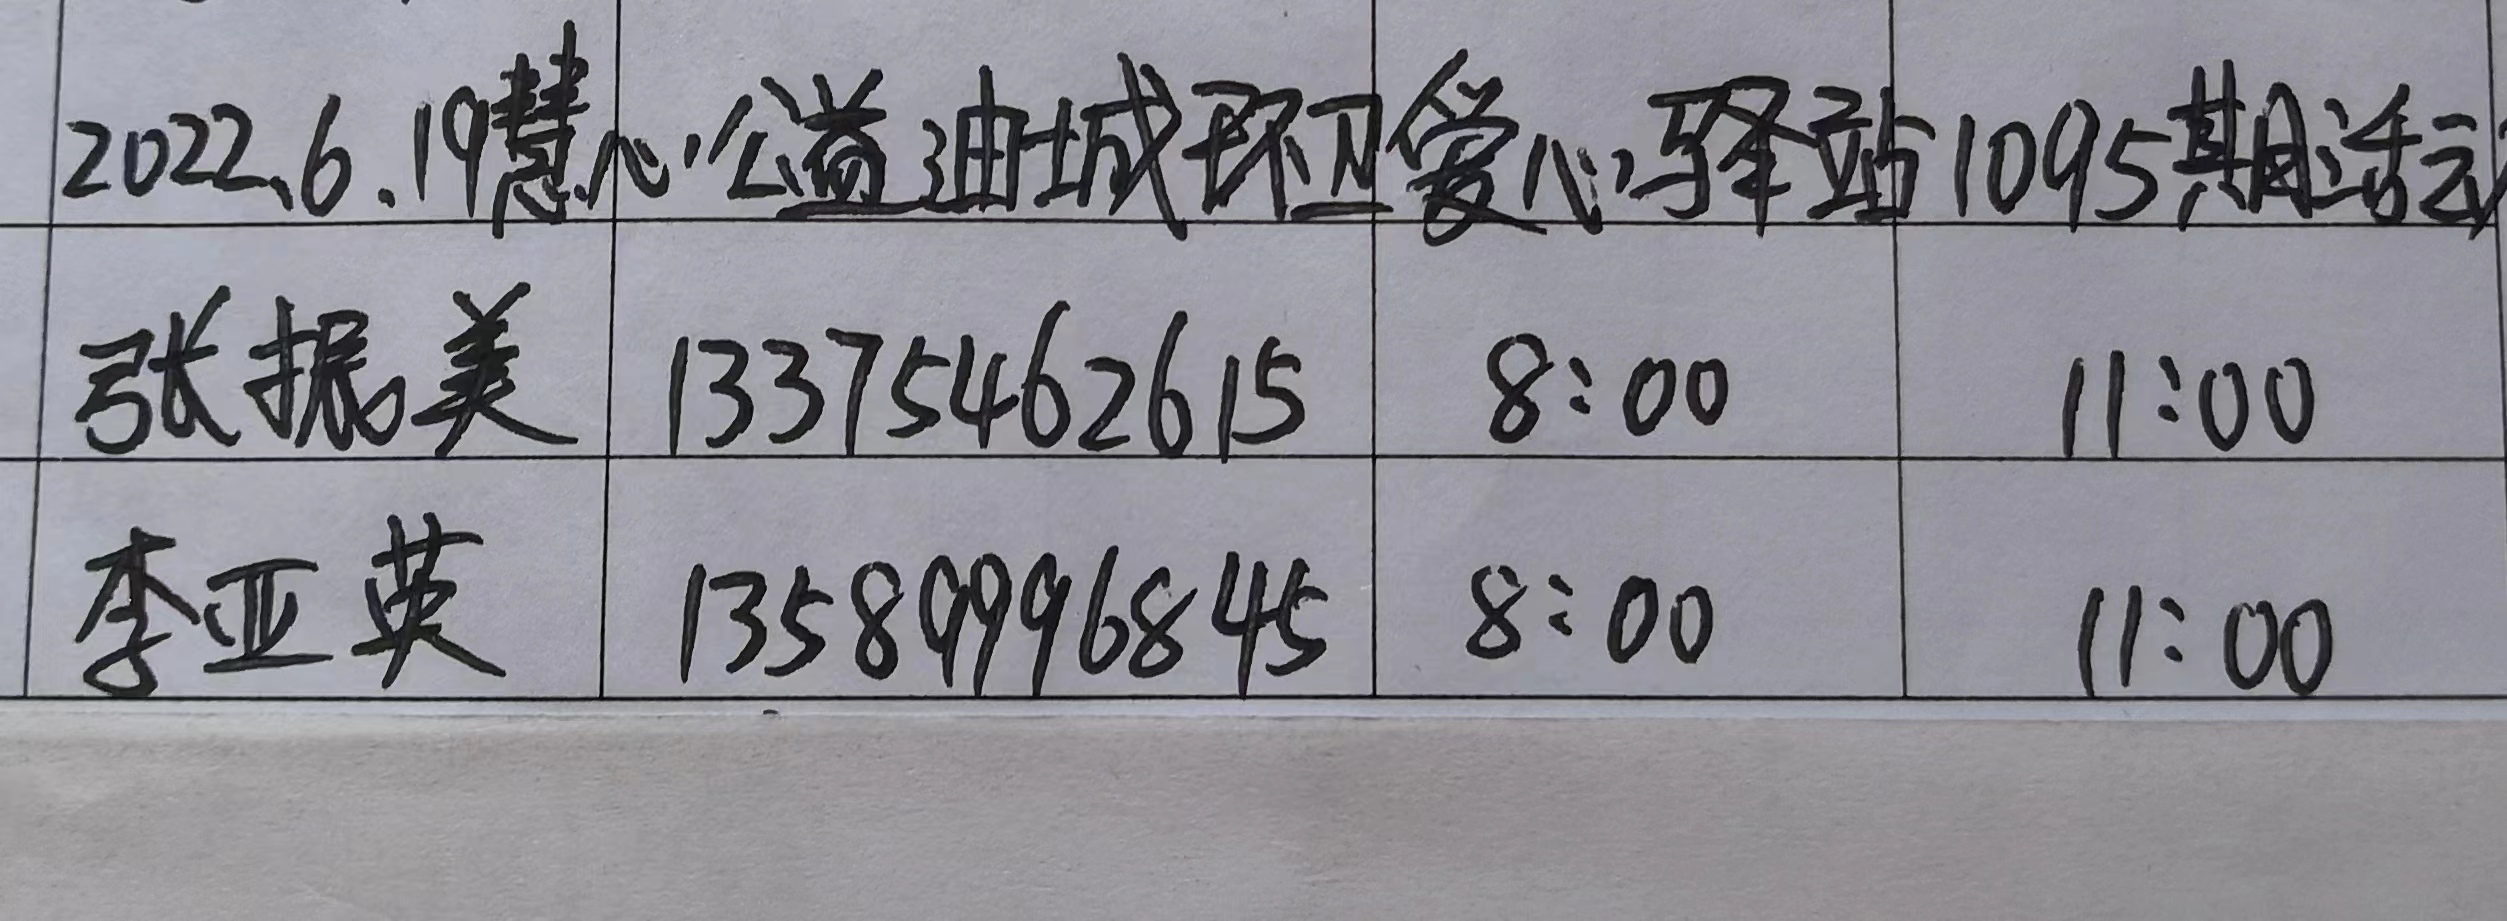 2022.6.19慧心公益油城环卫爱心驿站1095期活动
张振美 13375462615 8:00 11:00
李亚英 13589996845 8:00 11:00